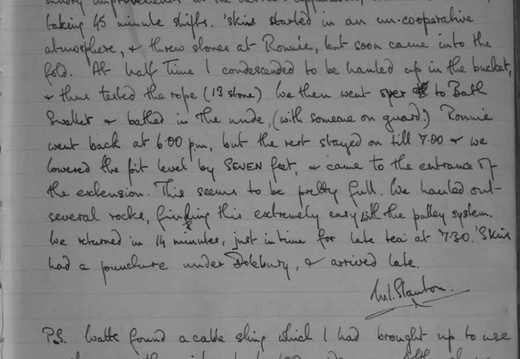 taking 45 minute shifts. 'Skins started in an un-cooperative
atmosphere, & threw stones at Ronnie, but soon came into the
fold. At half Time I condescended to be hauled up in the bucket,
& thus tested the rope (13 stone) We then went over to Bath
Swallet & bathed in the nude, (with someone on guard) Ronnie
went back at 6.00 pm, but the rest stayed on till 7.00 & we
lowered the pit level by SEVEN feet, & came to the entrance of
the extension. This seems to be pretty full. We hauled out
several rocks, finding this extremely easy with the pulley system.
We returned in 14 minutes, just in time for late tea at 7.30. 'Skins
had a puncture under Dolebury, & arrived late.
W.I. Stanton.
P.S. Watts found a cable sling which I had brought up to use